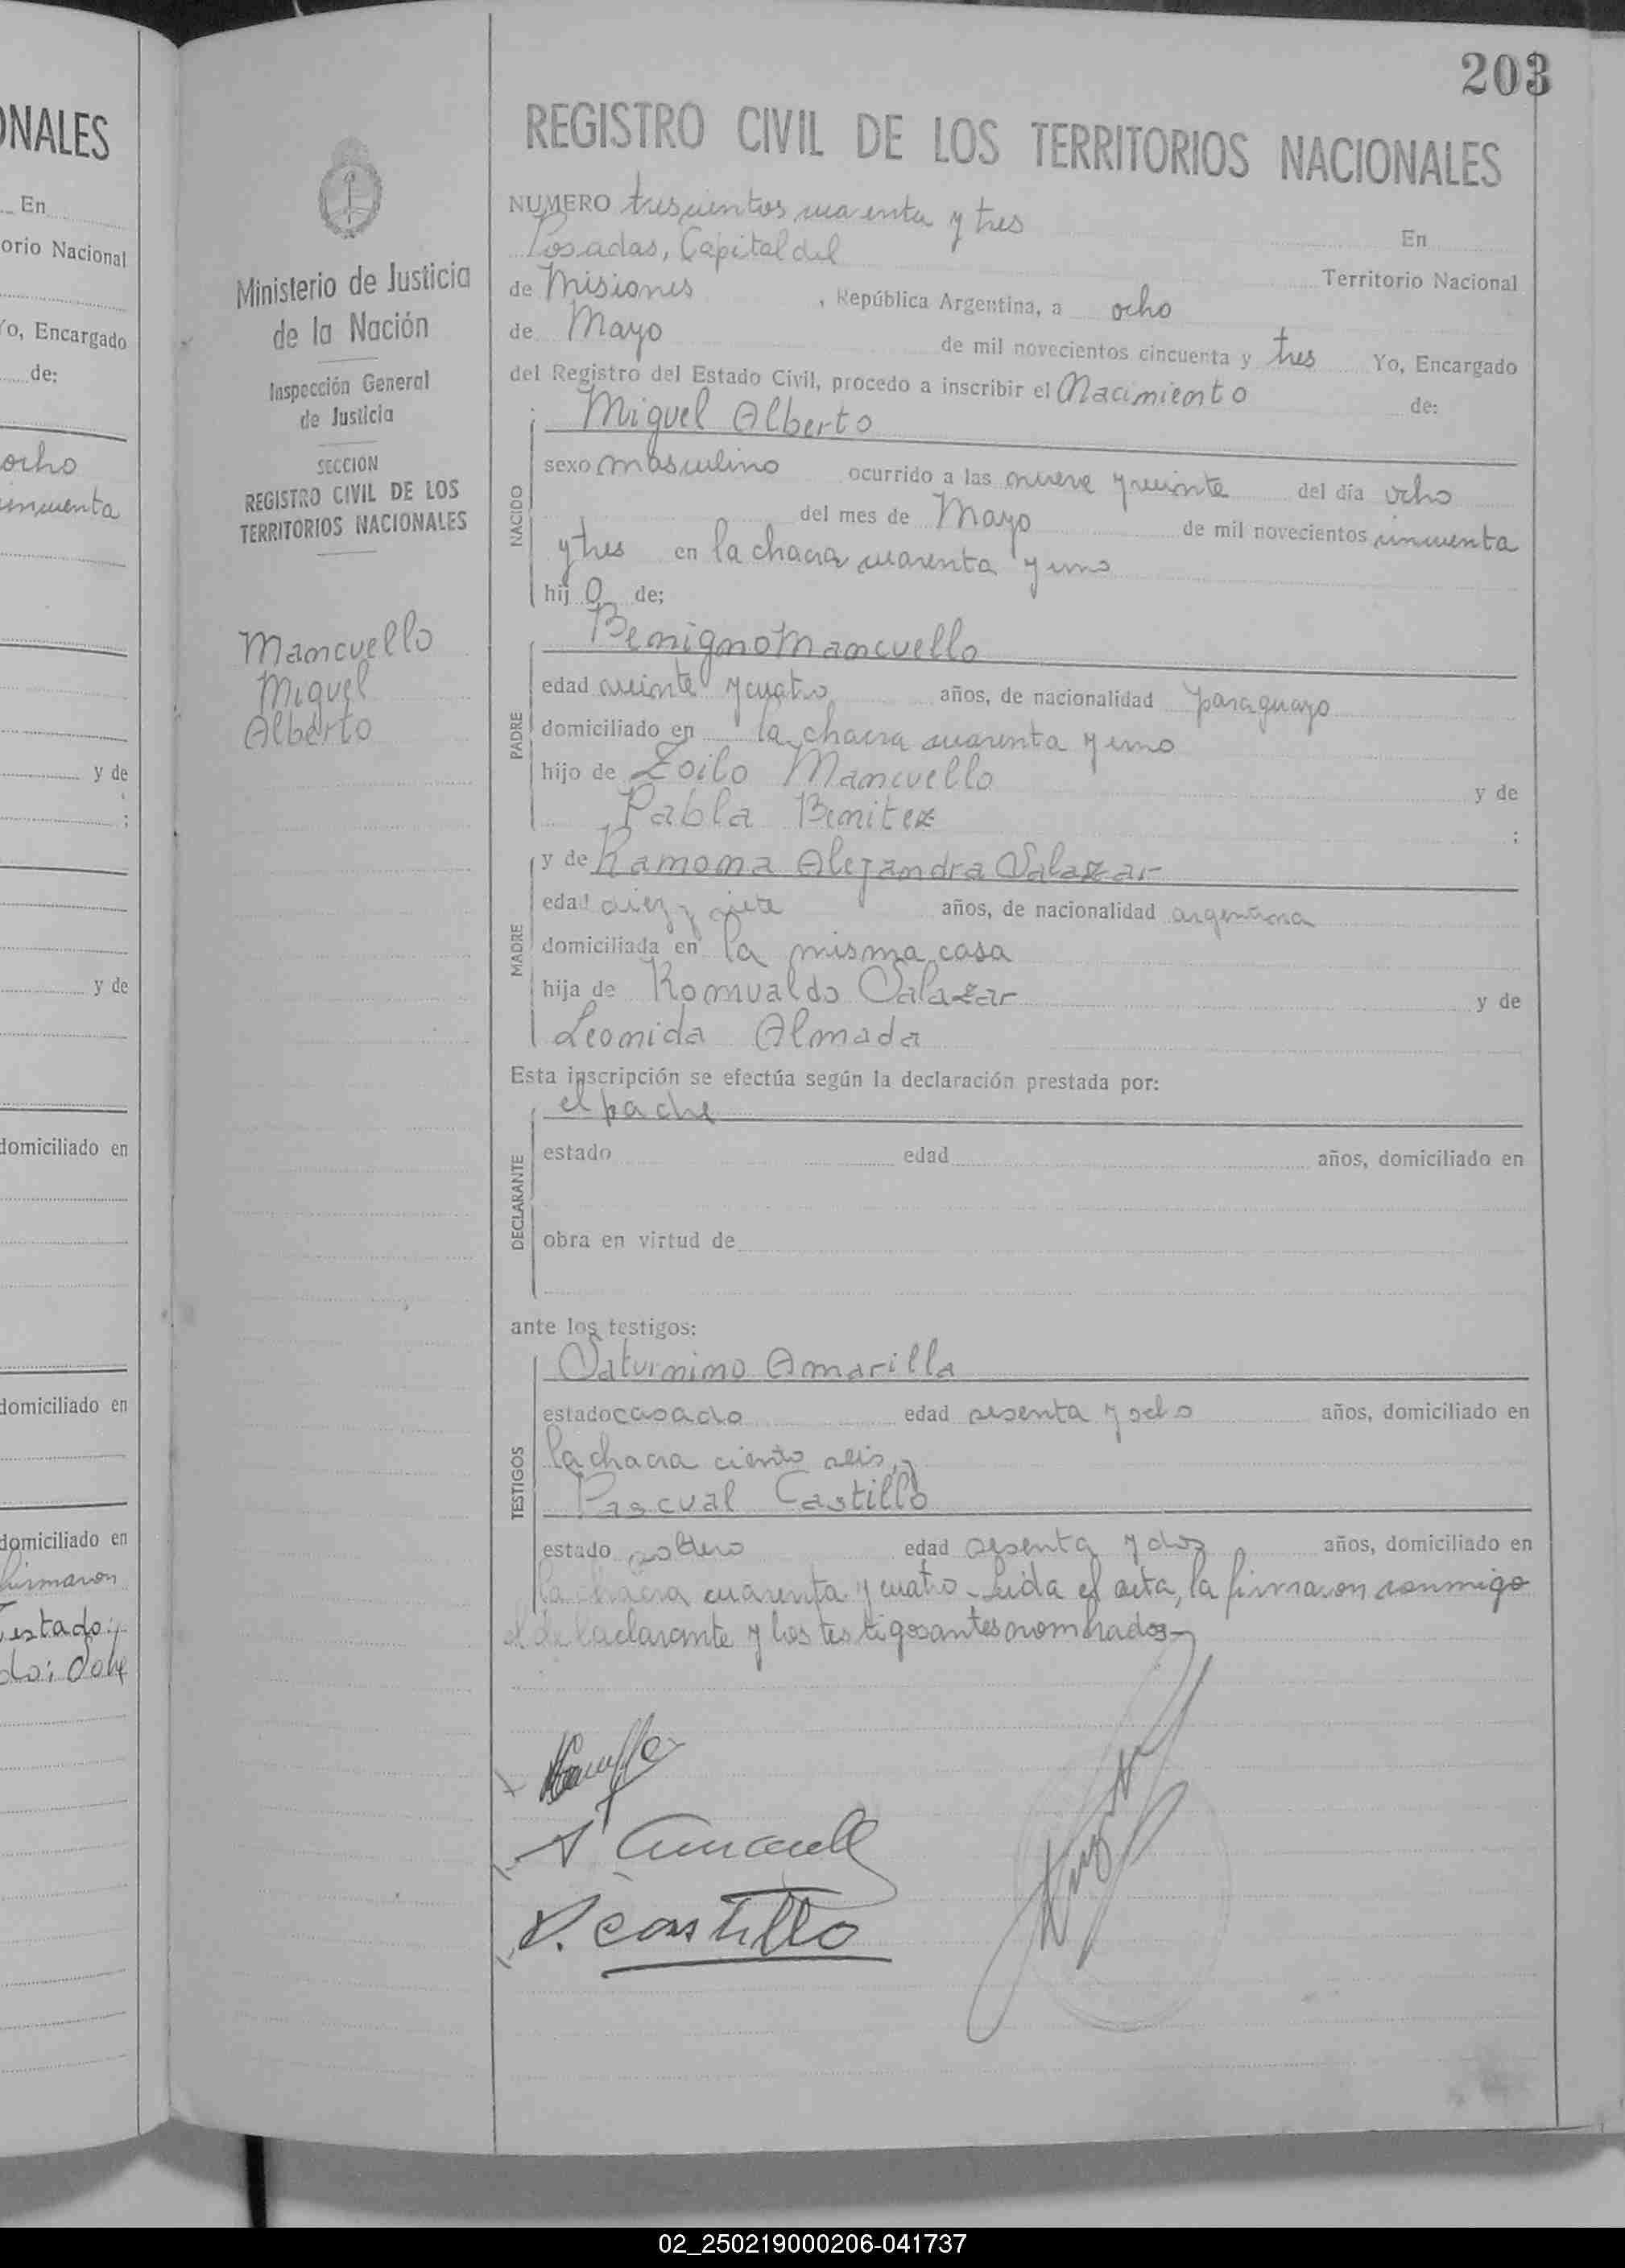 ONALES
En
orio Nacional
Yo, Encargado
de:
ocho
cincuenta
y de
;
y de
domiciliado en
domiciliado en
domiciliado en
firmaron
Testado:
Ministerio de Justicia
de la Nación
Inspección General
de Justicia
SECCION
REGISTRO CIVIL DE LOS
TERRITORIOS NACIONALES
Mancuello
Miguel
Alberto
203
REGISTRO CIVIL DE LOS TERRITORIOS NACIONALES
NUMERO trescientos cuarenta y tres En
Posadas, Capital del Territorio Nacional
de Misiones , República Argentina, a ocho
de Mayo de mil novecientos cincuenta y tres Yo, Encargado
del Registro del Estado Civil, procedo a inscribir el Nacimiento de:
Miguel Alberto
NACIDO
sexo masculino ocurrido a las nueve y veinte del día ocho
del mes de Mayo de mil novecientos cincuenta
y tres en la chacra cuarenta y uno
hij o de;
Benigno Mancuello
PADRE
edad veinte y cuatro años, de nacionalidad paraguayo
domiciliado en la chacra cuarenta y uno
hijo de Zoilo Mancuello y de
Pabla Benitez ;
MADRE
y de Ramona Alejandra Salazar
edad diez y siete años, de nacionalidad argentina
domiciliada en la misma casa
hija de Romualdo Salazar y de
Leonida Almada
Esta inscripción se efectúa según la declaración prestada por:
el padre
DECLARANTE
estado edad años, domiciliado en
obra en virtud de
ante los testigos:
Saturnino Amarilla
TESTIGOS
estado casado edad sesenta y ocho años, domiciliado en
la chacra ciento seis, y
Pascual Castillo
estado soltero edad sesenta y dos años, domiciliado en
la chacra cuarenta y cuatro - Leida el acta, la firmaron conmigo
el declarante y los testigos antes nombrados -
P. Castillo
02_250219000206-041737